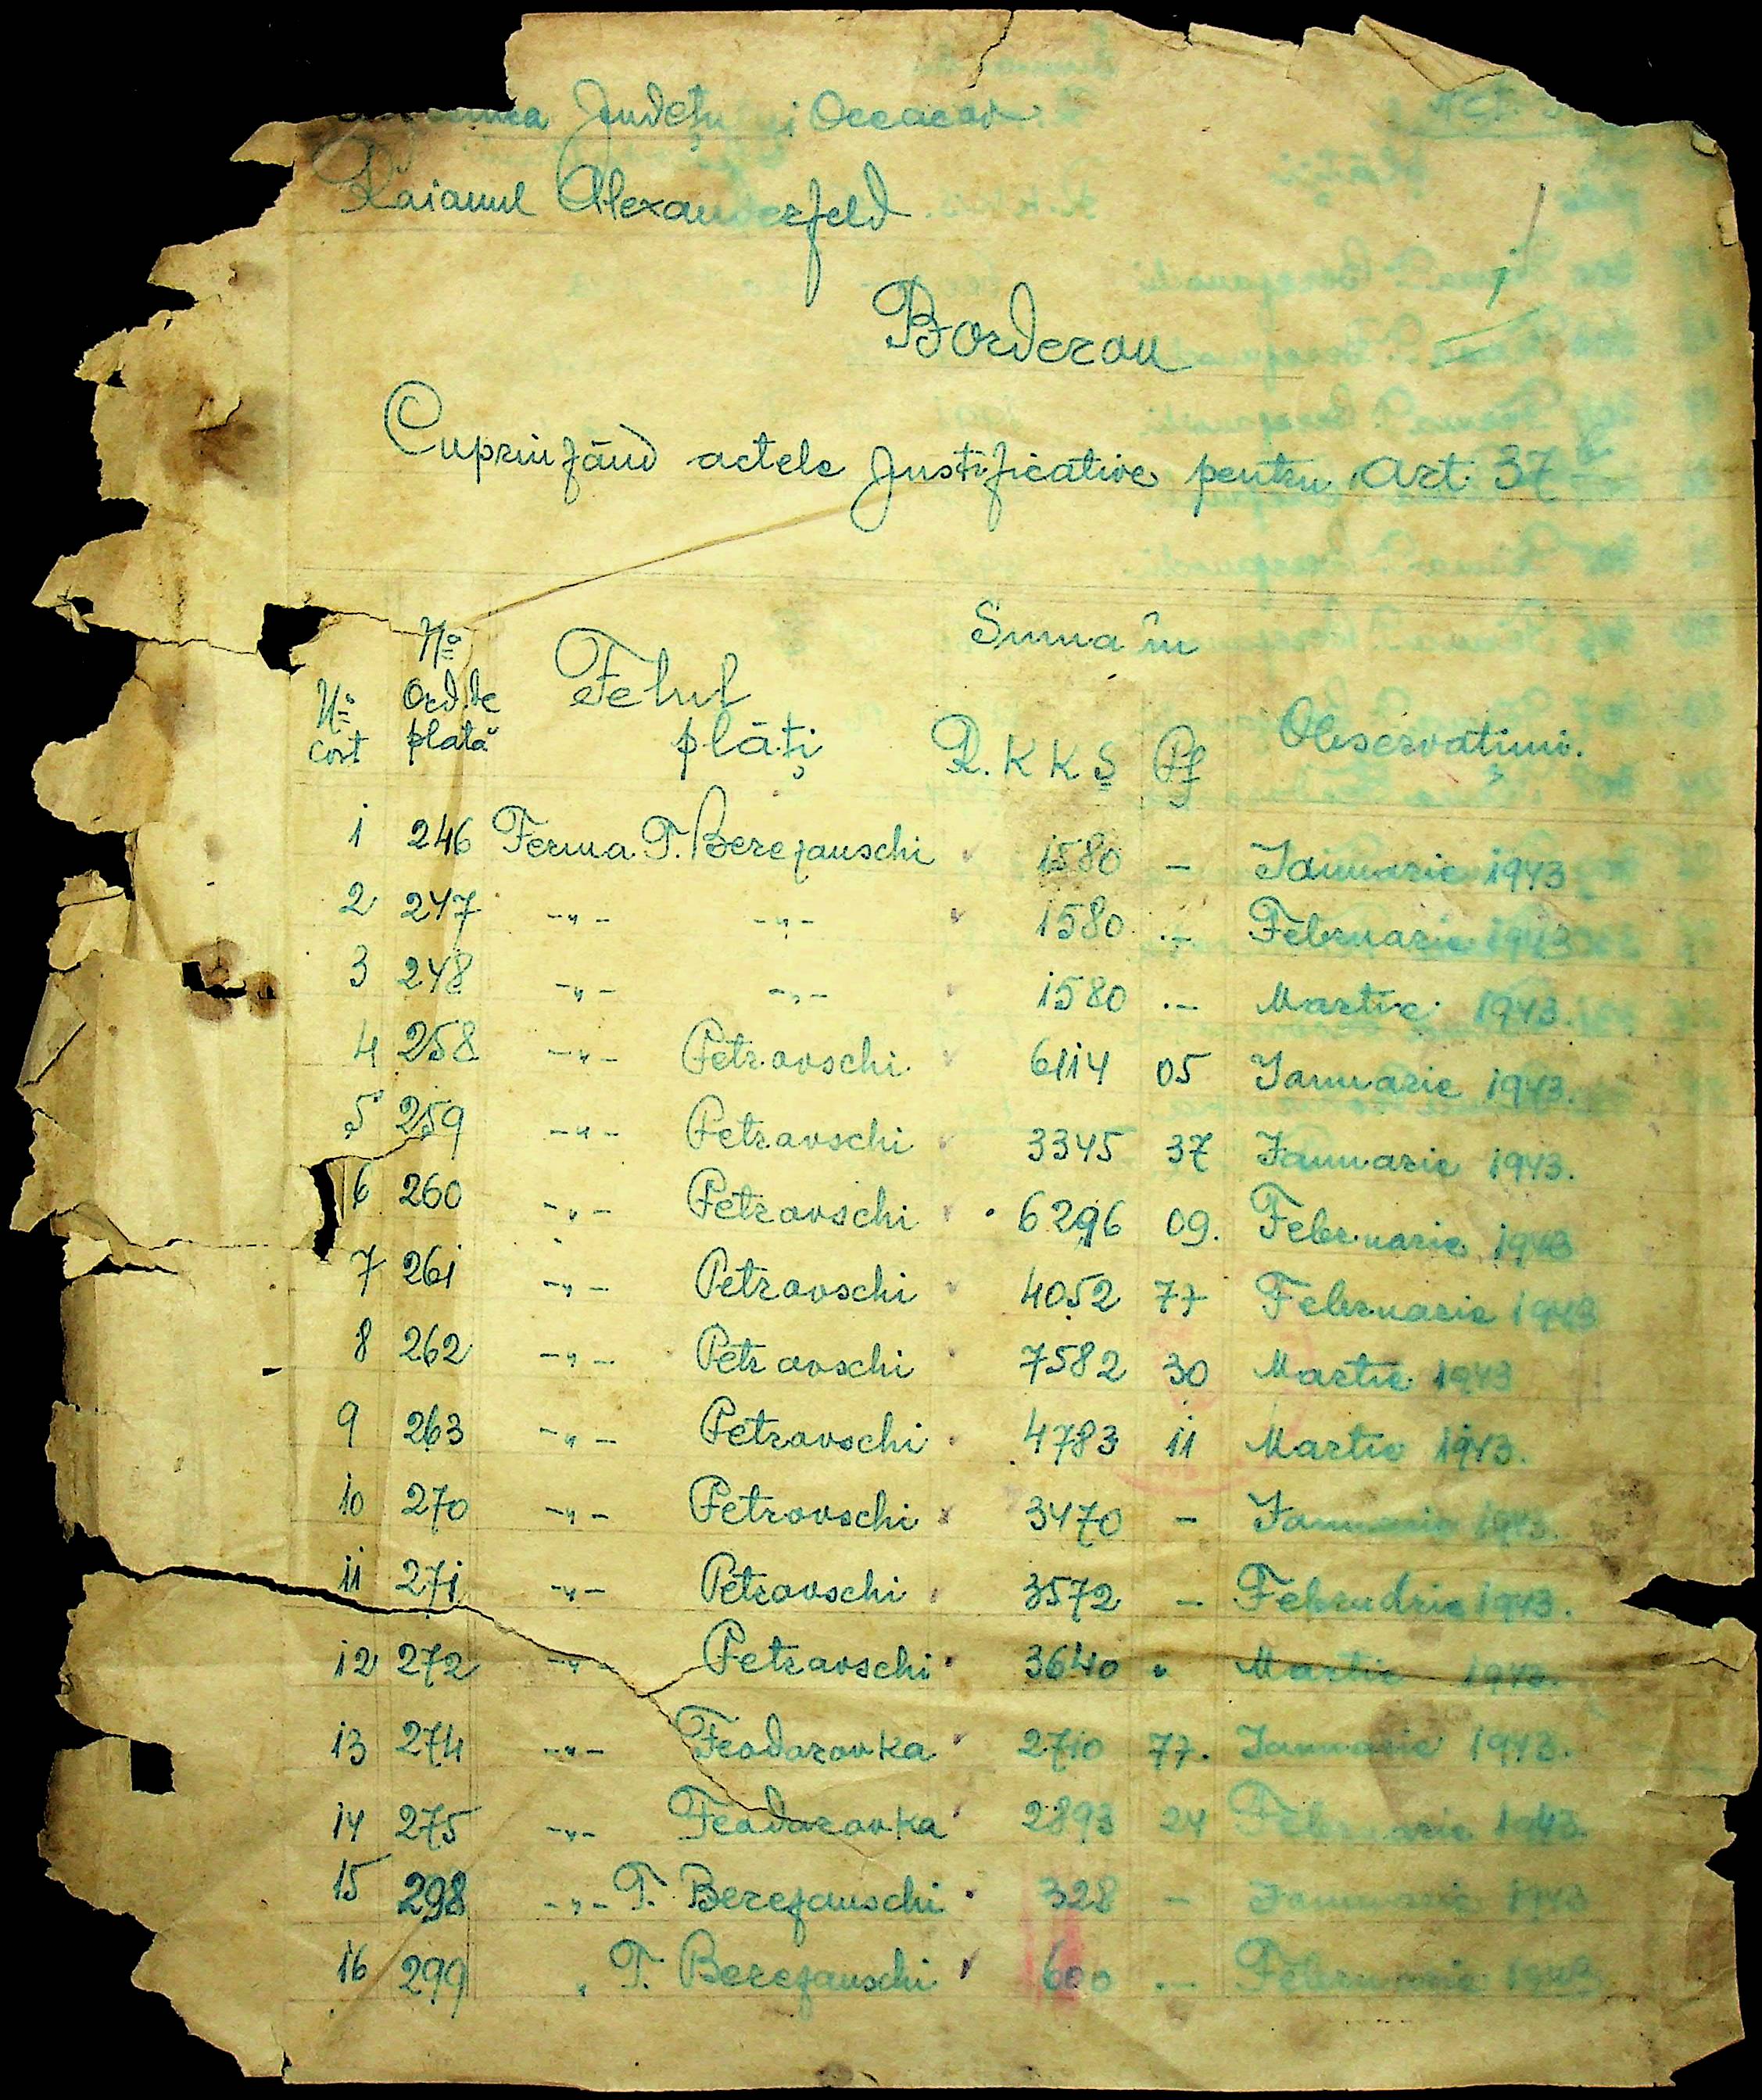 Județului Oceacov
Raionul Alexanderfeld
1
Borderou
Cuprinzând actele Justificative pentru Art. 37 b.
No cort No Ord.de plată Felul plăți Suma în R.K.K.S Pf Observatiuni.
1 246 Ferma T. Berezanschi 1580 – Ianuarie 1943
2 247 –„– –„– 1580 .– Februarie 1943
3 248 –„– –„– 1580 .– Martie 1943.
4 258 –„– Petrovschi 6114 05 Ianuarie 1943.
5 259 –„– Petrovschi 3345 37 Ianuarie 1943.
6 260 –„– Petrovschi 6296 09. Februarie 1943
7 261 –„– Petrovschi 4052 77 Februarie 1943
8 262 –„– Petrovschi 7582 30 Martie 1943
9 263 –„– Petrovschi 4783 11 Martie 1943.
10 270 –„– Petrovschi 3470 – Ianuarie 1943.
11 271 –„– Petrovschi 3572 – Februarie 1943.
12 272 –„– Petrovschi 3640 . Martie 1943.
13 274 –„– Feodorovka 2710 77. Ianuarie 1943.
14 275 –„– Feodorovka 2893 24 Februarie 1943.
15 298 –„– T. Berezanschi 328 – Ianuarie 1943
16 299 „ T. Berezanschi 600 .– Februarie 1943